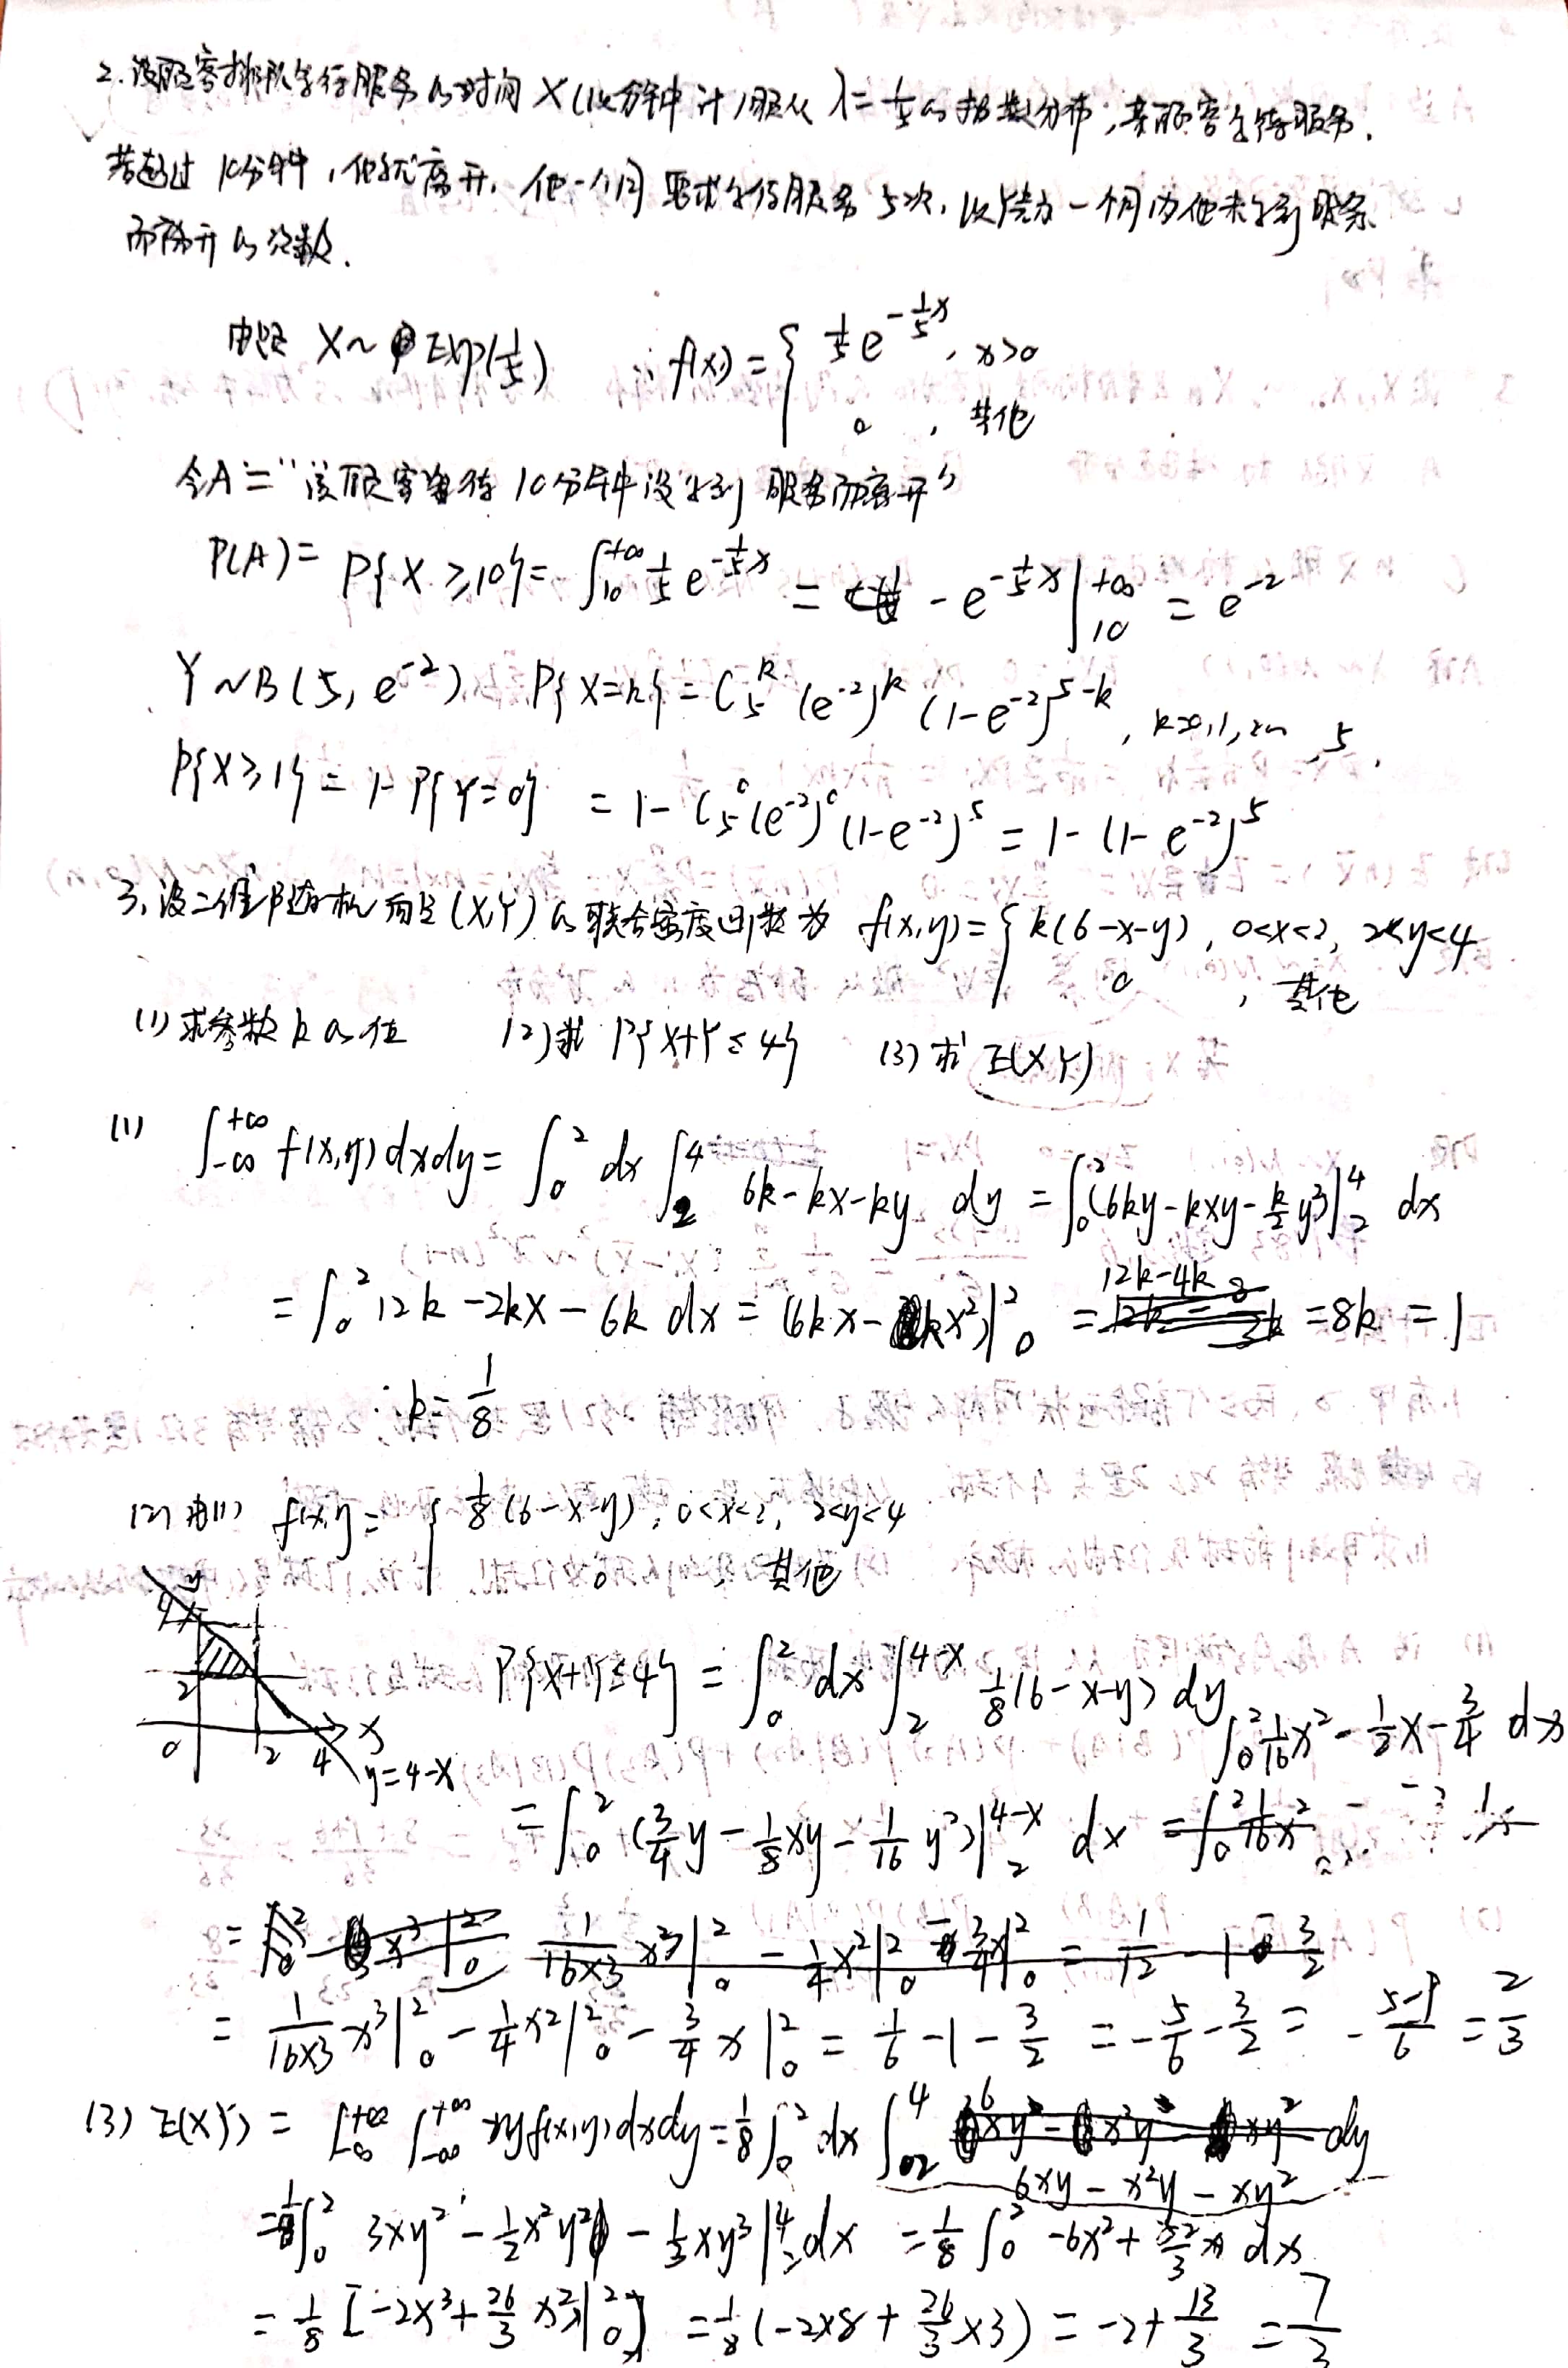 2.设顾客排队等待服务的时间 X(以分钟计)服从 λ=1/5的指数分布,某顾客等待服务.
若超过 10分钟,他就离开.他一个月要求等待服务 5次,以 一个月内他未等到服务
而离开的次数.
由题 X~Exp(1/5) ∴ f(x)={ 1/5 e^{-1/5 x}, x>0
0 , 其他
令A="该顾客等待 10分钟没等到服务而离开"
P(A)= P{X≥10}= ∫_{10}^{+∞} 1/5 e^{-1/5 x} = -e^{-1/5 x}|_{10}^{+∞} = e^{-2}
Y~B(5, e^{-2}). P{X=k}=C_5^k (e^{-2})^k (1-e^{-2})^{5-k}, k=0,1,2,…,5.
P{X≥1}= 1-P{Y=0} = 1-C_5^0 (e^{-2})^0 (1-e^{-2})^5 = 1-(1-e^{-2})^5
3.设二维随机向量(X,Y)的联合密度函数为 f(x,y)={ k(6-x-y), 0<x<2, 2<y<4
0 , 其他
(1)求参数k的值 (2)求 P{X+Y≤4} (3)求 E(XY)
(1) ∫_{-∞}^{+∞} f(x,y)dxdy= ∫_0^2 dx ∫_2^4 6k-kx-ky dy = ∫_0^2 (6ky-kxy-k/2 y²)|_2^4 dx
= ∫_0^2 12k-2kx-6k dx = (6kx-kx²)|_0^2 = 12k-4k =8k =1
∴k=1/8
(2) 由(1) f(x,y)= { 1/8(6-x-y), 0<x<2, 2<y<4
0 其他
y
4
2
0 2 4 x
y=4-x
P{X+Y≤4} = ∫_0^2 dx ∫_2^{4-x} 1/8(6-x-y) dy
= ∫_0^2 (3/4 y - 1/8 xy - 1/16 y²)|_2^{4-x} dx ∫_0^2 1/16 x² - 1/2 x - 3/4 dx
= 1/(16×3) x³|_0^2 - 1/4 x²|_0^2 - 3/4 x|_0^2 = 1/6 -1 -3/2 = -5/6 -3/2 = -(5-9)/6 = 2/3
(3) E(XY) = ∫_{-∞}^{+∞} ∫_{-∞}^{+∞} xyf(x,y)dxdy = 1/8 ∫_0^2 dx ∫_2^4 6xy - x²y - xy² dy
= 1/8 ∫_0^2 3xy² - 1/2 x²y² - 1/3 xy³|_2^4 dx = 1/8 ∫_0^2 -6x² + 52/3 x dx
= 1/8 [-2x³ + 26/3 x²|_0^2] = 1/8 (-2×8 + 26/3 ×3) = -2 + 13/3 = 7/3